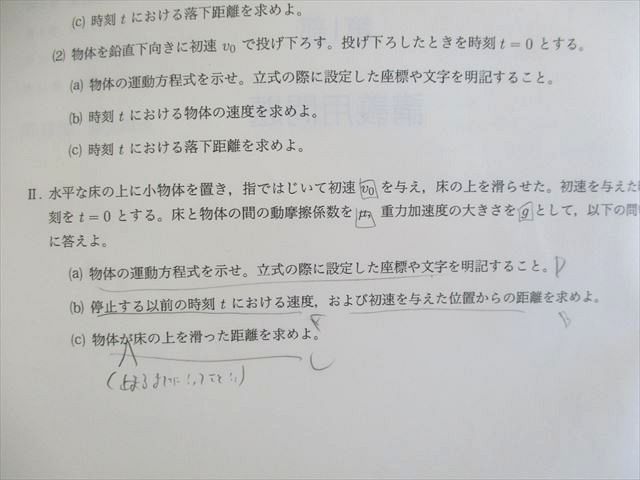 (c) 時刻 t における落下距離を求めよ。
(2) 物体を鉛直下向きに初速 v₀ で投げ下ろす。投げ下ろしたときを時刻 t = 0 とする。
(a) 物体の運動方程式を示せ。立式の際に設定した座標や文字を明記すること。
(b) 時刻 t における物体の速度を求めよ。
(c) 時刻 t における落下距離を求めよ。
II. 水平な床の上に小物体を置き，指ではじいて初速 v₀ を与え，床の上を滑らせた。初速を与えた時
刻を t = 0 とする。床と物体の間の動摩擦係数を 重力加速度の大きさを g として，以下の問
に答えよ。
(a) 物体の運動方程式を示せ。立式の際に設定した座標や文字を明記すること。
(b) 停止する以前の時刻 t における速度，および初速を与えた位置からの距離を求めよ。
B
(c) 物体が床の上を滑った距離を求めよ。